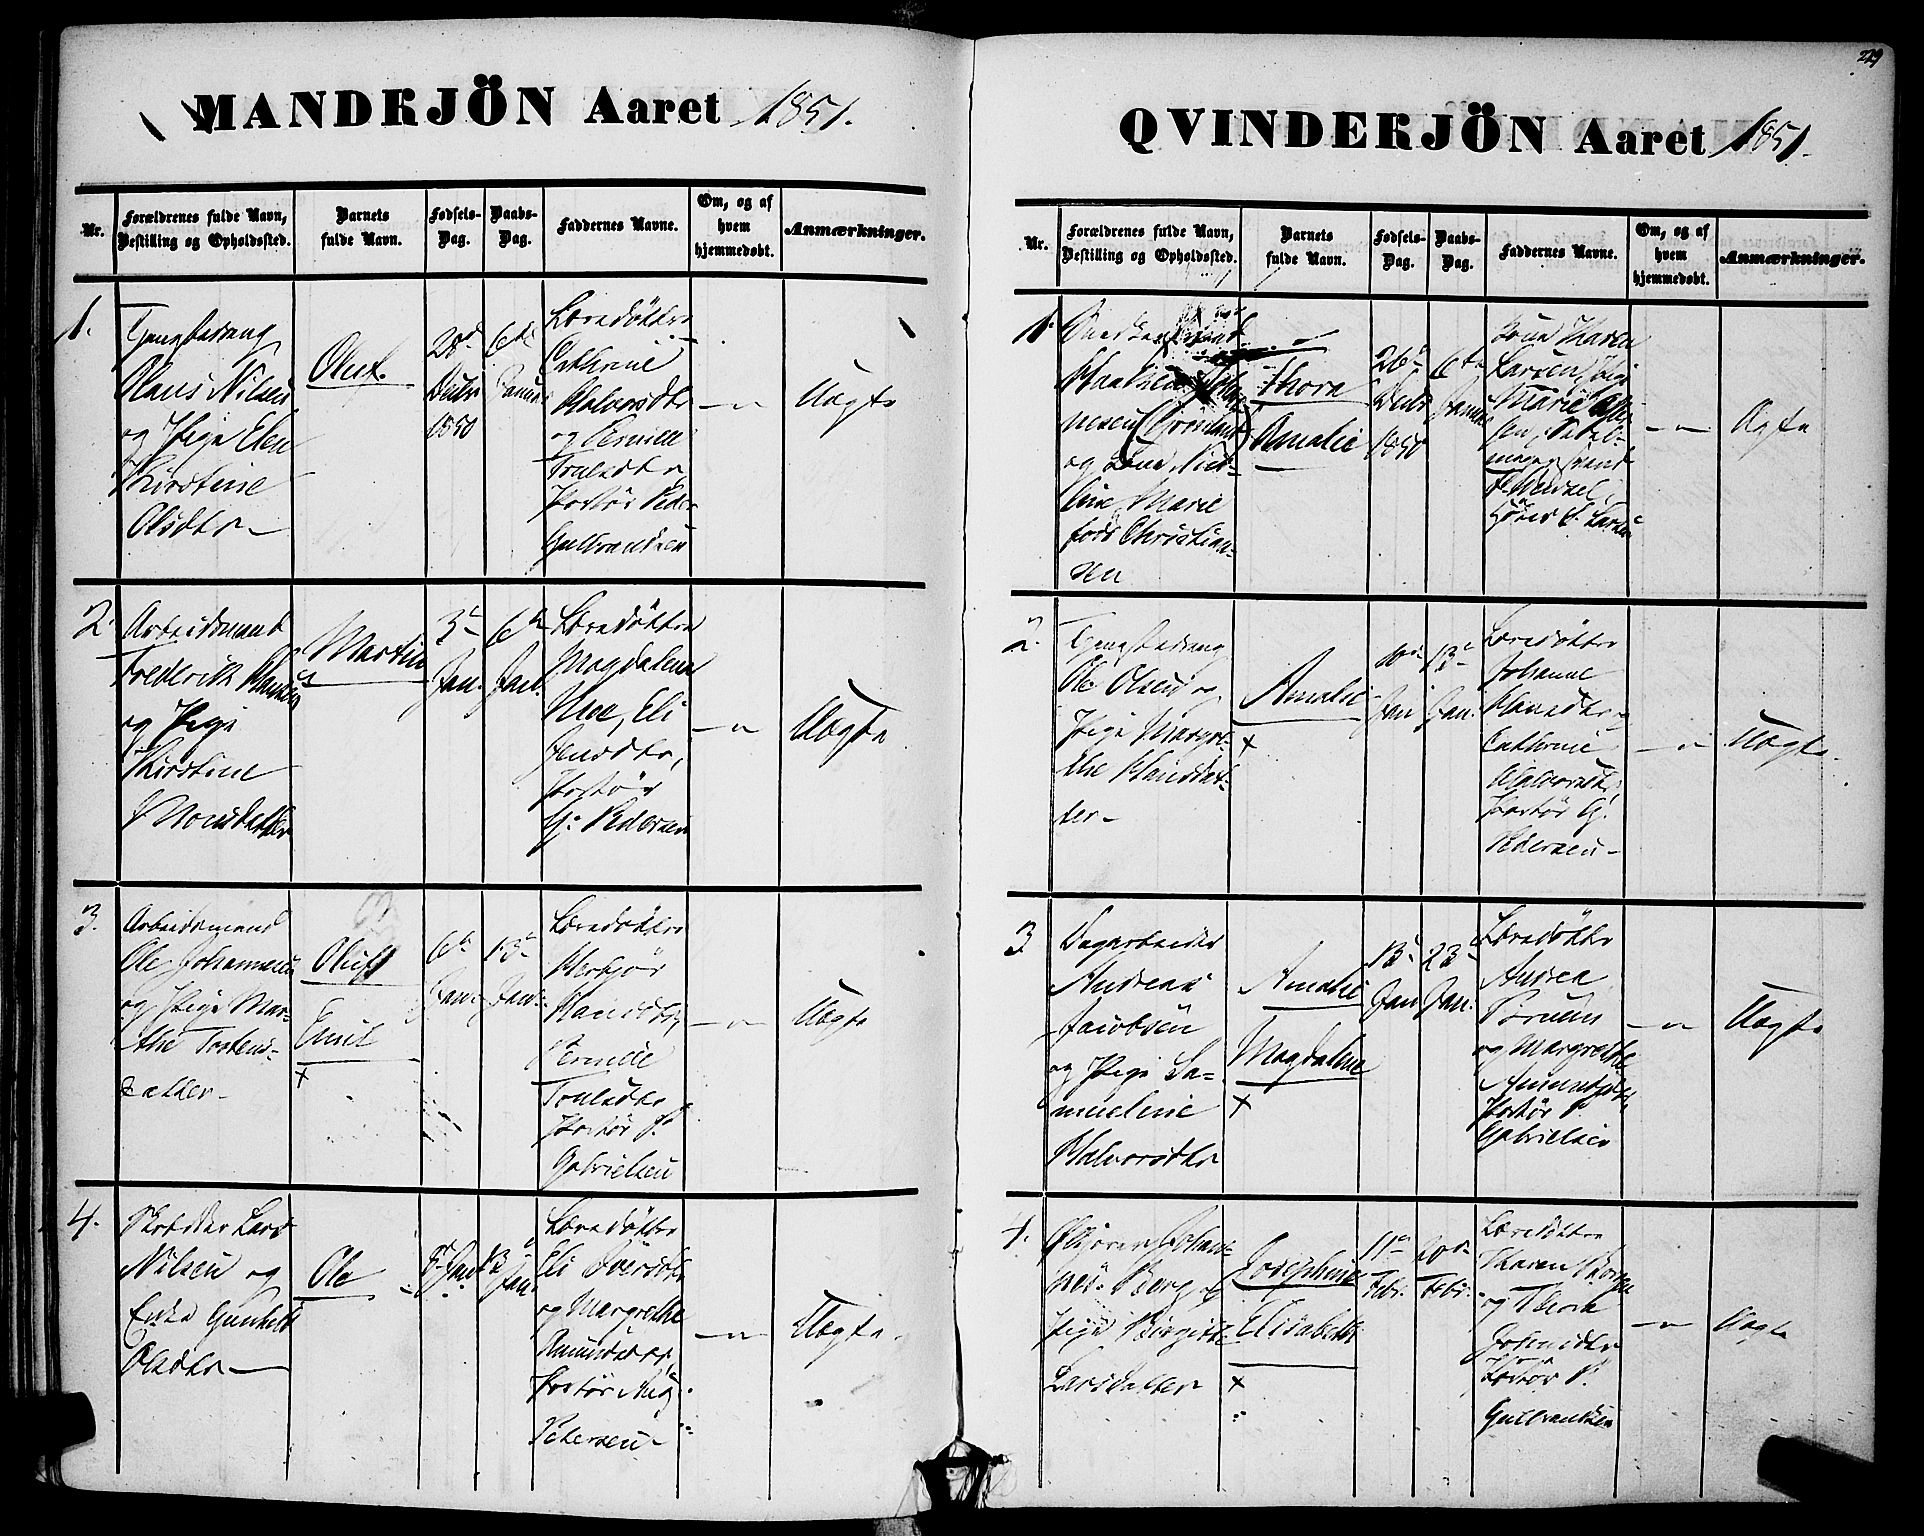 MANDKJÖN Aaret 1851.
Nr.
Forældrenes fulde Navn,
Bestilling og Opholdssted.
Barnets
fulde Navn.
Fødsels-
Dag.
Daabs-
Dag.
Faddernes Navne.
Om, og af
hvem
hjemmedøbt.
Anmærkninger.
1.
Olaus Nilsen
og Pige Elen
Kirstine
Olsdtr
Oluf.
28de
Decbr
1850
6te
Januar
Læredøttre
Cathrine
Halvorsdtr
og Pernille
Trulsdtr
Portør Peder
Gulbrandsen
— " —
Uægte
2.
Arbeidsmand
Frederik Hansen
og Pige
Kirstine
Monsdatter
Martin
3de
Jan.
6te
Jan
Læredøttre
Magdalena
Moe, Eli
Jensdtr,
Portør
G. Pedersen
— " —
Uægte
3.
Arbeidsmand
Ole Johannesen
og Pige Mar-
the Torstens-
datter
Oluf
Emil
+
6te
Jan.
13de
Jan.
Læredøttre
Hansdtr,
Pernille
Trulsdtr
Portør P.
Gabrielsen
— " —
Uægte
4.
Skrædder Lars
Nilsen og
Enke Gunhild
Olsdtr
Ole
Jan
13
Jan.
Læredøttre
Eli Iversdtr
og Margrethe
Amundsdtr,
Portør Aug.
Petersen
— " —
Uægte.
229
QVINDEKJÖN Aaret 1851.
Nr.
Forældrenes fulde Navn,
Bestilling og Opholdssted.
Barnets
fulde Navn.
Fødsels-
Dag.
Daabs-
Dag.
Faddernes Navne.
Om, og af
hvem
hjemmedøbt.
Anmærkninger.
1.
Snedkersvend
nesen (Grønland)
og Kone Nico-
line Marie
født Christian-
sen
Thora
Amalie
26de
Decbr
1850
6te
Januar
Kone Karen
Larsen, Pige
Marie
sen, Sadel-
magersvend
Larsen
— " —
Ægte
2.
Ole Olsen og
Pige Margre-
the Hansdat-
ter
Amalie
+
Jan
13de
Jan.
Læredøttre
Johanne
Hansdtr
Cathrine
Halvorsdtr,
Portør G.
Pedersen
— " —
Uægte.
3
Dagarbeider
Andreas
Jacobsen
og Pige Sa-
mueline
Halvorsdtr
Amalie
Magdalene
+
13de
Jan
23de
Jan.
Læredøttre
Andrea
og Margrethe
Amundsdtr,
Portør P.
Gabrielsen
— " —
Uægte
4.
Johan-
nes Berg og
Pige Birgitte
Larsdatter
Josephine
Elisabeth
+
11te
Febr.
20de
Febr.
Læredøttre
Karen Borgen
og Thora
Portør P.
Gulbrandsen
— " —
Uægte